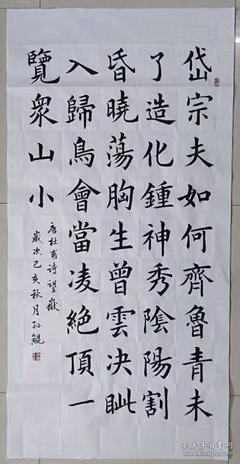 岱宗夫如何齊魯青未
了造化鍾神秀陰陽割
昏曉蕩胸生曾雲決眦
入歸鳥會當凌絶頂一
覽衆山小
唐杜甫詩望嶽
歲次己亥秋月孫鯤